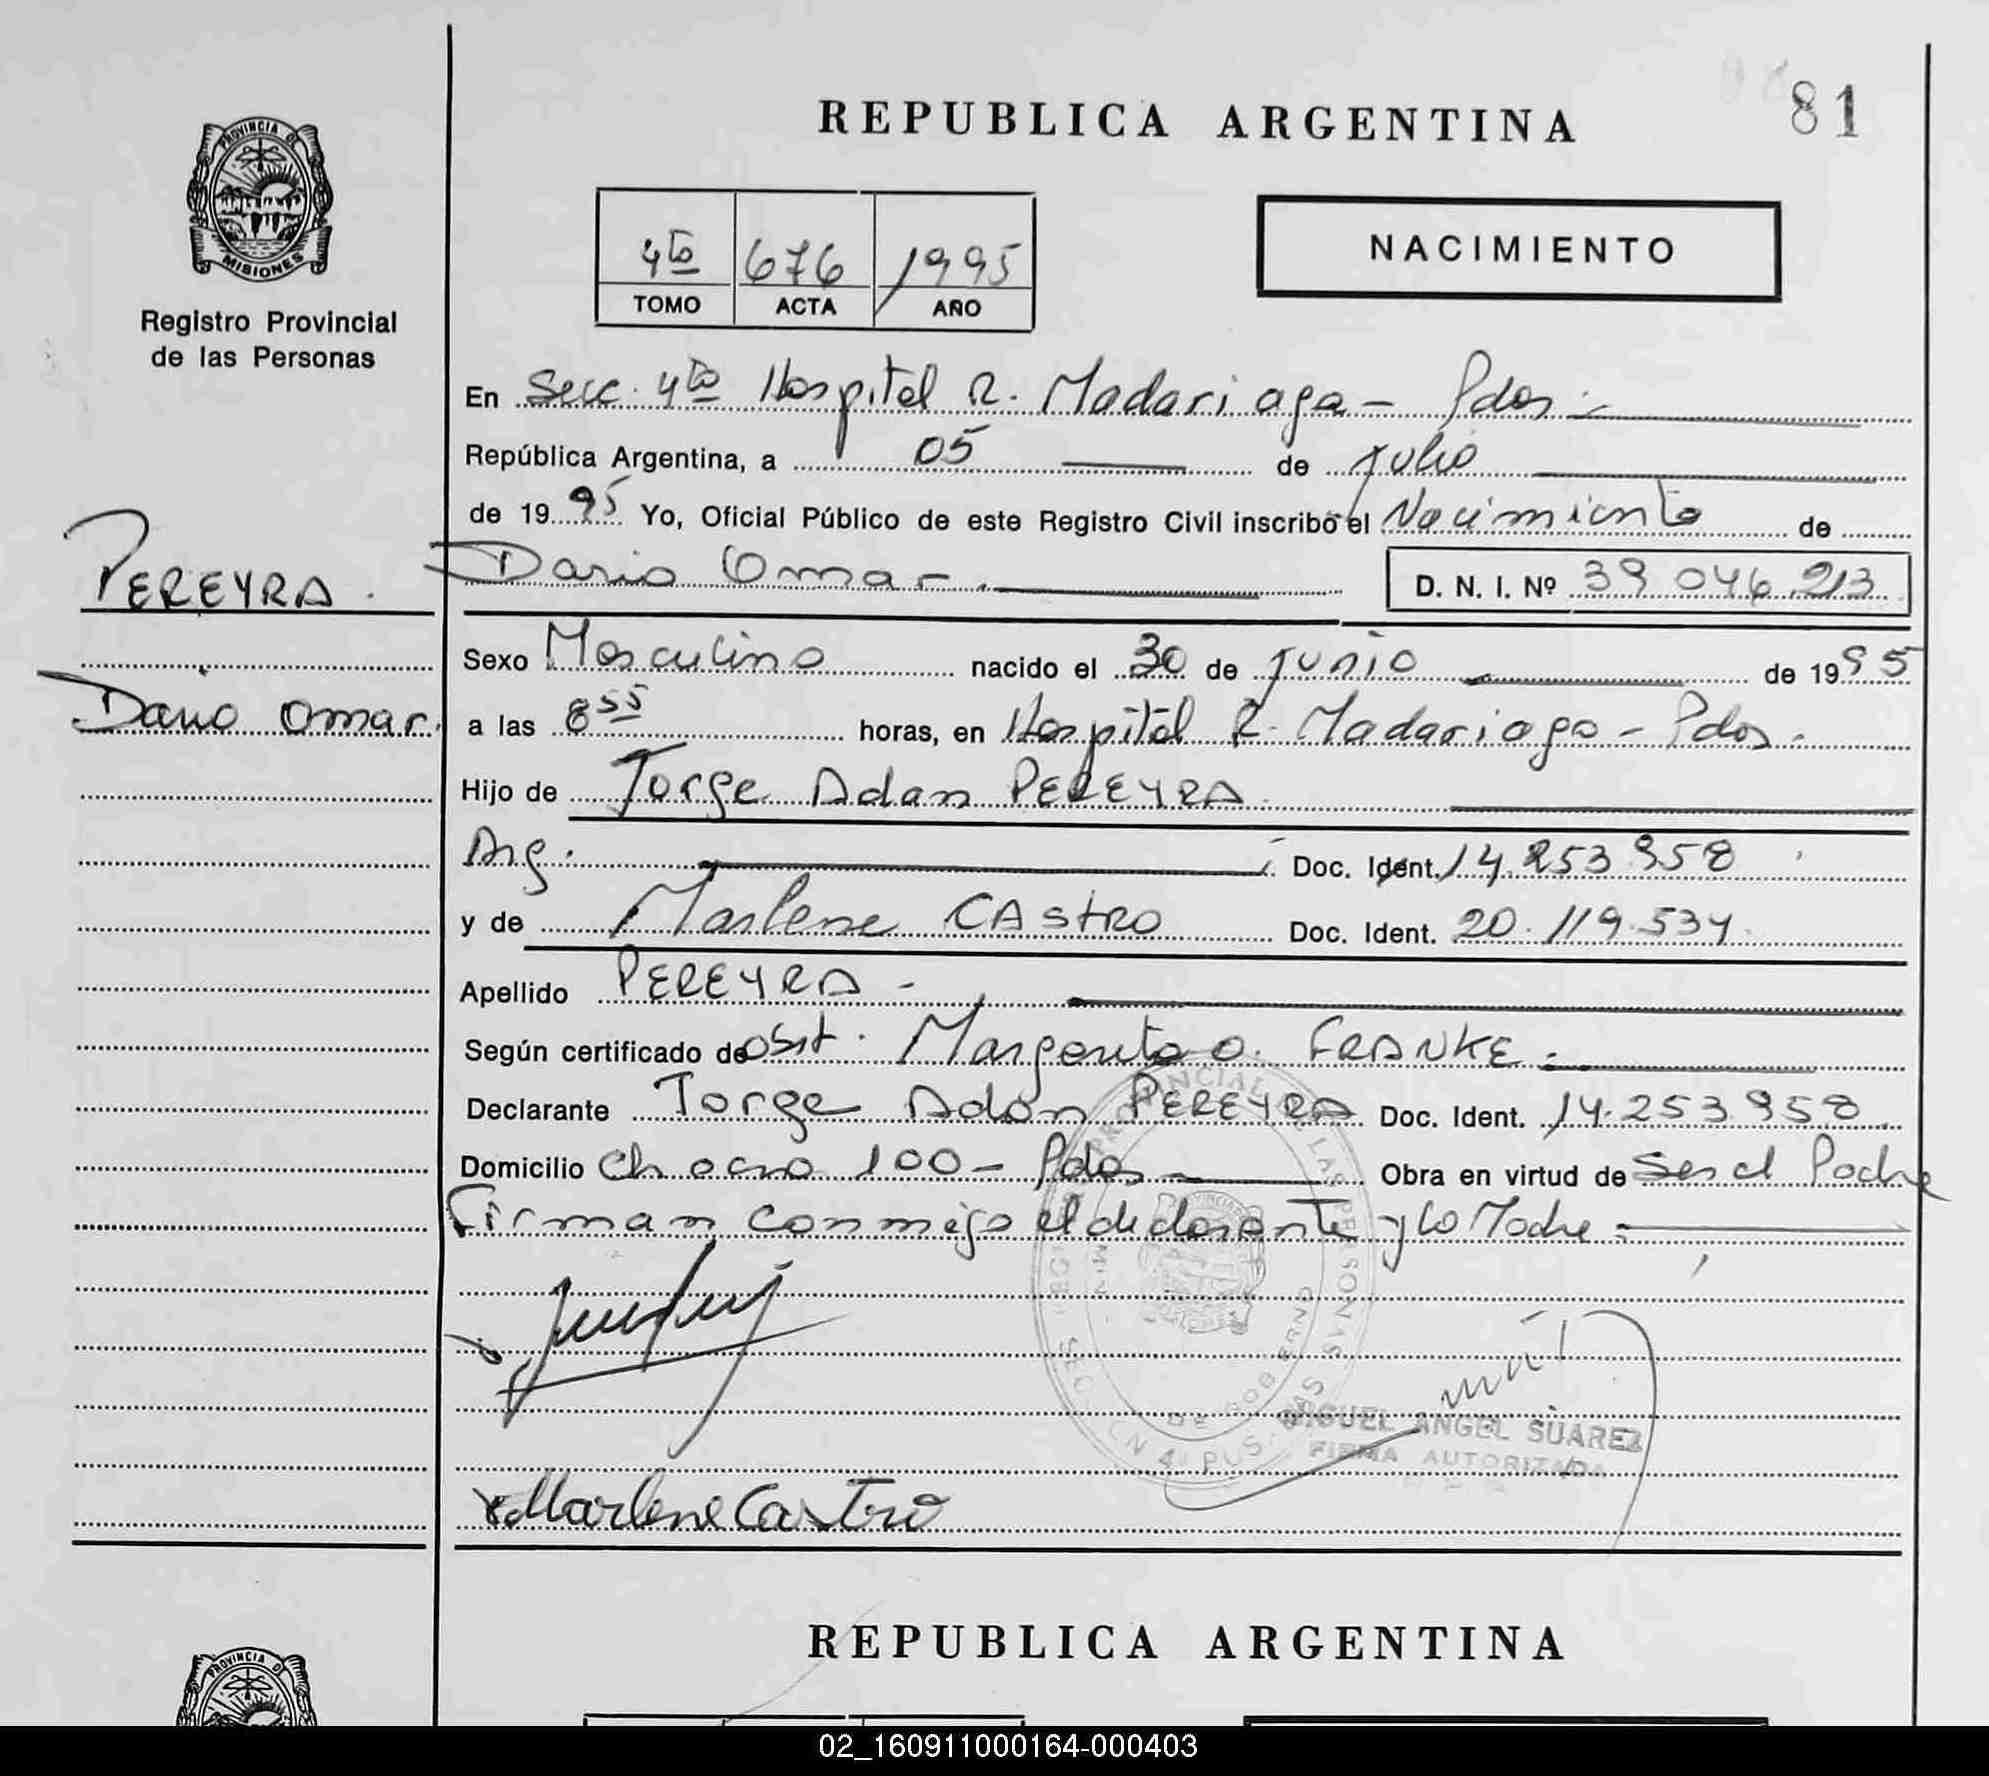 REPUBLICA ARGENTINA
81
PROVINCIA D
MISIONES
Registro Provincial
de las Personas
4to 676 1995
TOMO ACTA AÑO
NACIMIENTO
En Secc. 4to Hospital R. Madariaga - Pdas -
República Argentina, a 05 de julio
de 1995 Yo, Oficial Público de este Registro Civil inscribo el Nacimiento de
PEREYRA.
Dario Omar. D. N. I. Nº 39 046.213
Sexo Masculino nacido el 30 de junio de 1995
Dario Omar.
a las 8 55 horas, en Hospital R. Madariaga - Pdas.
Hijo de Jorge Adan PEREYRA
Arg. Doc. Ident. 14.253.958
y de Marlene CAstRO Doc. Ident. 20.119.534
Apellido PEREYRA -
Según certificado de obst. Margarita O. FRANKE.
Declarante Jorge Adan PEREYRA Doc. Ident. 14.253.958
Domicilio Chacra 100 - Pdas Obra en virtud de Ser el Padre
Firman conmigo el declarante y la Madre
MIGUEL ANGEL SUAREZ
FIRMA AUTORIZADA
Marlene Castro
REPUBLICA ARGENTINA
PROVINCIA D
02_160911000164-000403